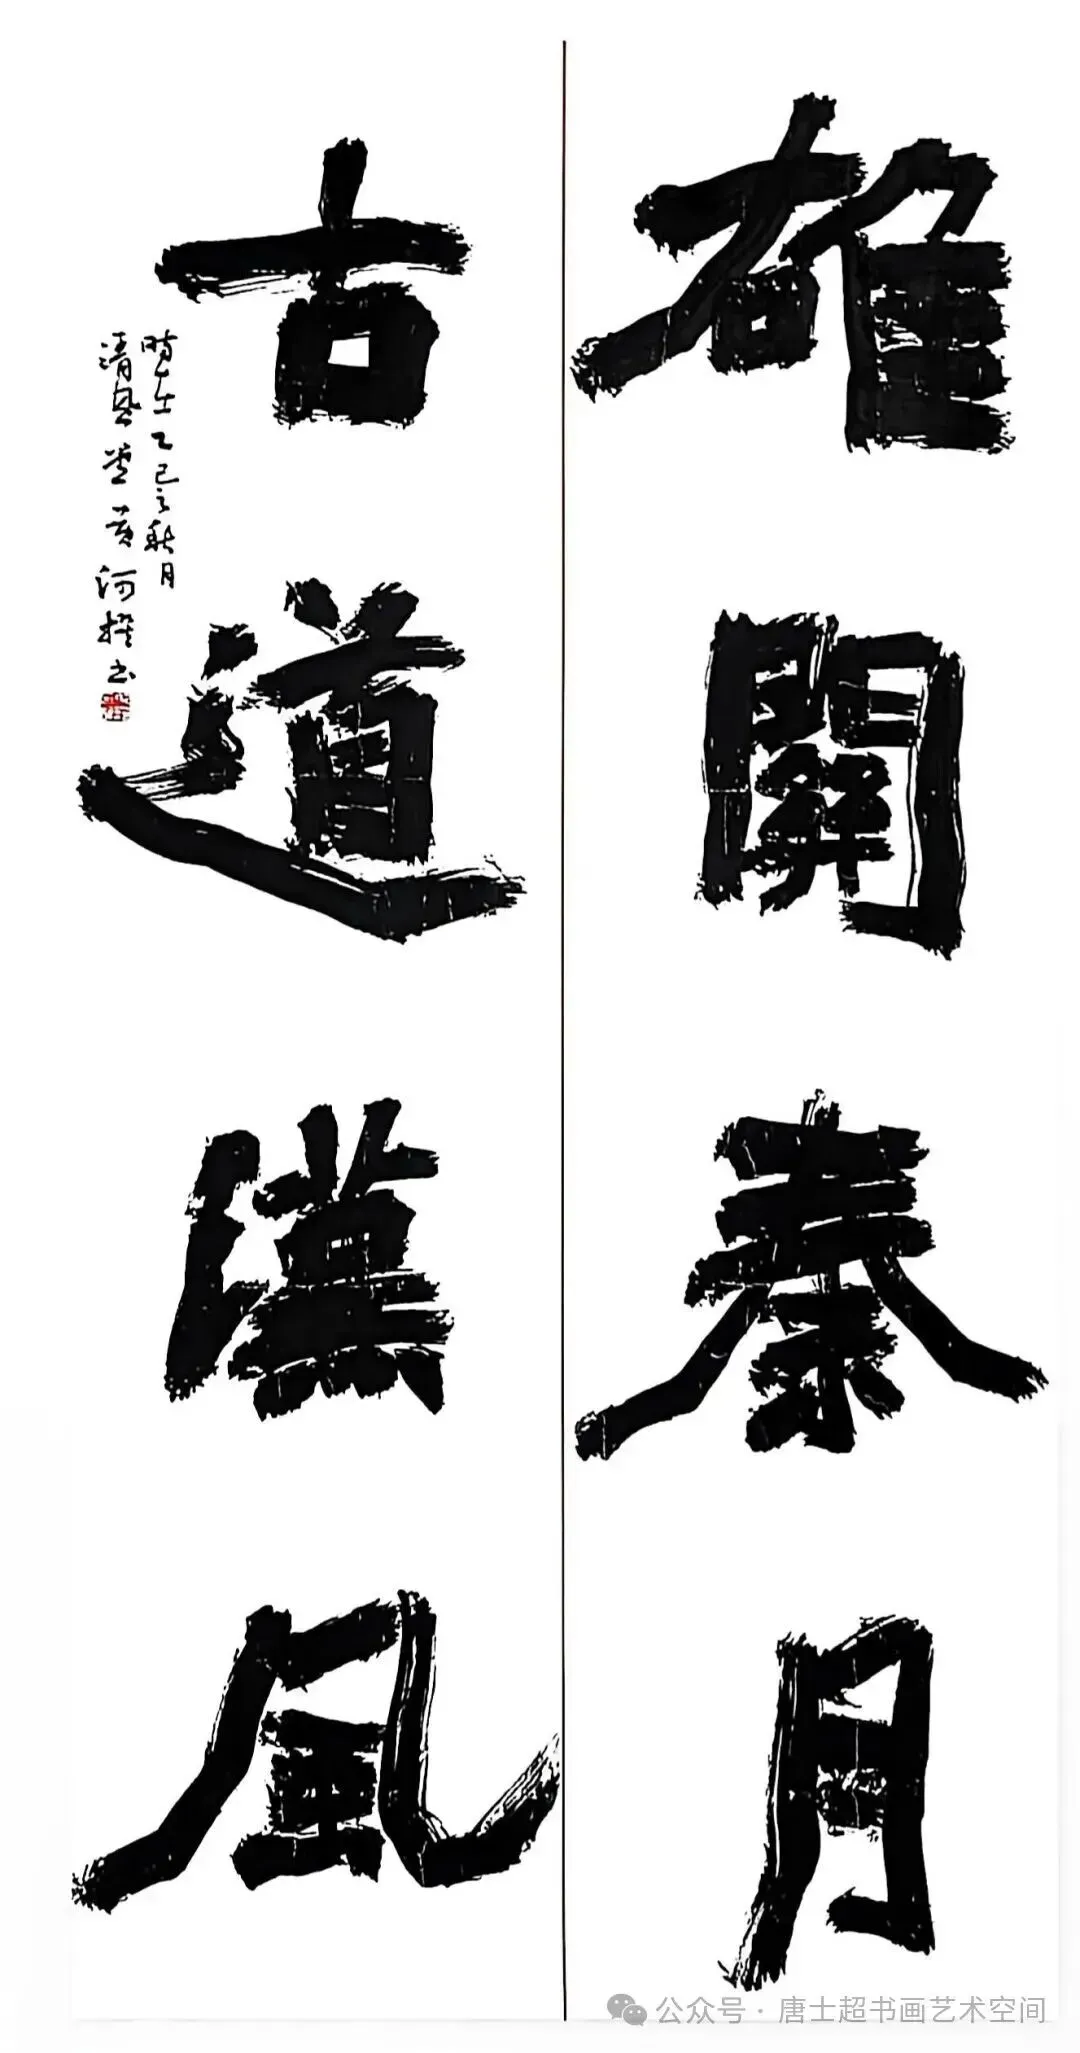 雄關秦月
古道漢風
時在乙巳之秋月
清風堂黃河撰书
公众号·唐士超书画艺术空间